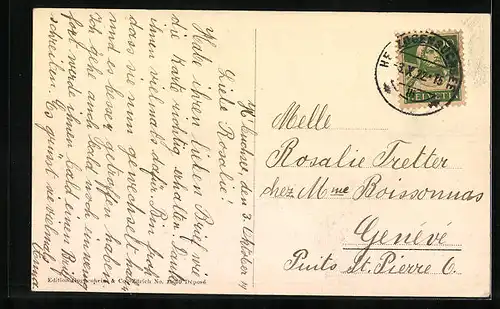 H'buchsee, den 3. Oktober 14
Liebe Rosalie!
Habe ihren lieben Brief wie
die Karte richtig erhalten. Danke
ihnen vielmals dafür. Bin froh
dass sie nun gewechselt haben
und es besser getroffen haben.
Ich gehe auch bald noch ein wenig
fort werde ihnen bald einen Brief
schreiben. Es grüsst sie vielmals
Emma
HELVETIA
Melle
Rosalie Tretter
chez Mme Boissonnas
Genévé
Puits St. Pierre 6.
& Co., Zürich No. Déposé